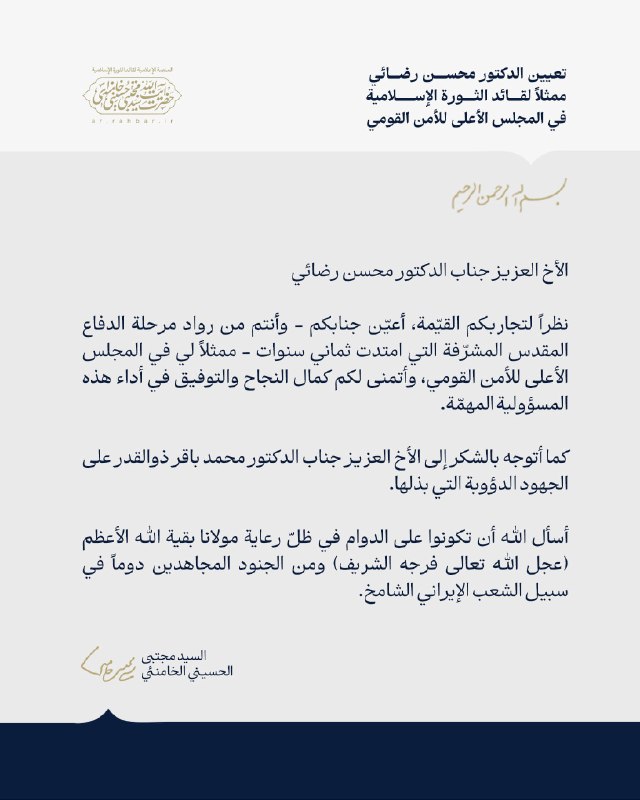 تعيين الدكتور محســـن رضــائي
ممثلاً لقــائد الثــورة الإســــلامية
في المجلس الأعلى للأمن القومي
المنصة الإعلامية لقائد الثورة الإسلامية
ar.rahbar.ir
بسم الله الرحمن الرحيم
الأخ العزيز جناب الدكتور محسن رضائي
نظراً لتجاربكم القيّمة، أعيّن جنابكم – وأنتم من رواد مرحلة الدفاع
المقدس المشرّفة التي امتدت ثماني سنوات – ممثلاً لي في المجلس
الأعلى للأمن القومي، وأتمنى لكم كمال النجاح والتوفيق في أداء هذه
المسؤولية المهمّة.
كما أتوجه بالشكر إلى الأخ العزيز جناب الدكتور محمد باقر ذوالقدر على
الجهود الدؤوبة التي بذلها.
أسأل الله أن تكونوا على الدوام في ظلّ رعاية مولانا بقية الله الأعظم
(عجل الله تعالى فرجه الشريف) ومن الجنود المجاهدين دوماً في
سبيل الشعب الإيراني الشامخ.
السيد مجتبى
الحسيني الخامنئي